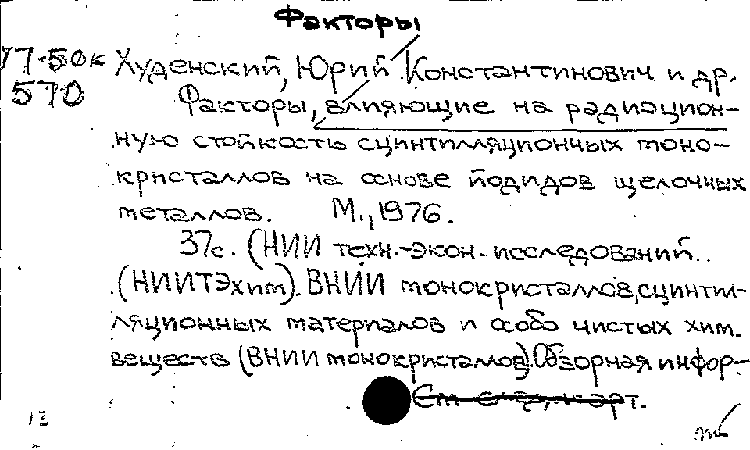 Факторы
77-50к Худенский, Юрий Константинович и др.
570 Факторы, влияющие на радиацион-
ную стойкость сцинтилляционных моно-
кристаллов на основе йодидов щелочных
металлов. М., 1976.
37с. (НИИ техн.-экон. исследований.
(НИИТЭхим). ВНИИ монокристаллов, сцинтил-
ляционных материалов и особо чистых хим.
веществ (ВНИИ монокристаллов). Обзорная инфор-
См. след. карт.